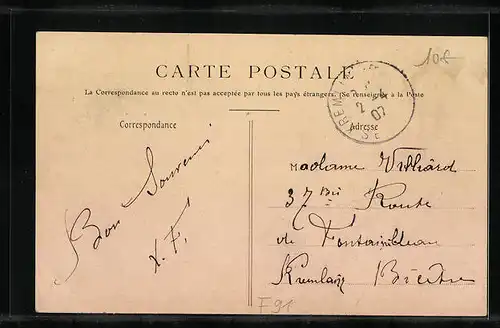 10f
CARTE POSTALE
La Correspondance au recto n'est pas acceptée par tous les pays étrangers. (Se renseigner à la Poste
Correspondance
Adresse
KREML
2
07
SE
Bon Souvenir
X. F.
Madame
37 Bis Route
de Fontainebleau
Kremlin Bicêtre
F91